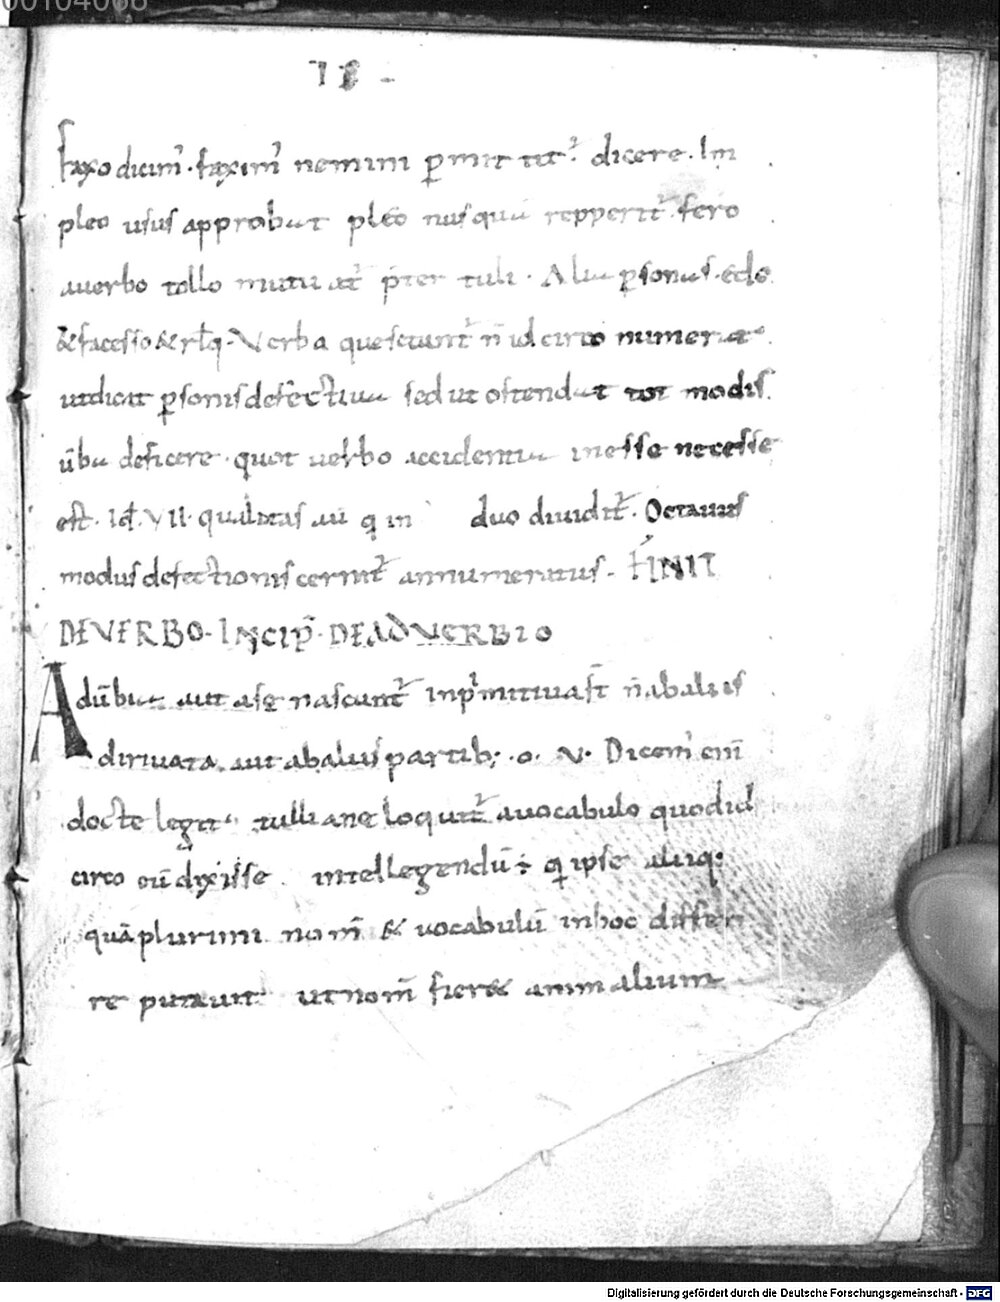 00104066
18
faxo dicim᷒ · faxim᷒ nemini ꝑmittit᷒ dicere · Im
pleo usus approbat pleo nusquā repperit᷒ · fero
auerbo tollo mutuat᷒ p̄ter tuli · Alia ꝑsonas · edo
& facesso & rlq · Verba que n̄ idcirco numerat
utdicat ꝑsonis defectiua sed ut ostendat tot modis
ūba deficere · quot uerbo accidentia inesse necesse
est · Id · VII · qualitas aū q in duo diuidit᷒ · Octauus
modus defectionis cernit᷒ annumeratus · FINIT
DEVERBO · INCIP̄ · DEADVERBIO
Adūbia aut ase nascunt᷒ n̄ abaliis
diriuata aut abaliis partib; · o · N · Dicem᷒ eni
docte legit tulliane loquit᷒ auocabulo quod id
circo eū dixisse intellegendū ÷ q ipse aliiq;
quāplurimi nom̄ & uocabulū inhoc differ
re putauit ut nom̄ sier& animalium
Digitalisierung gefördert durch die Deutsche Forschungsgemeinschaft - DFG